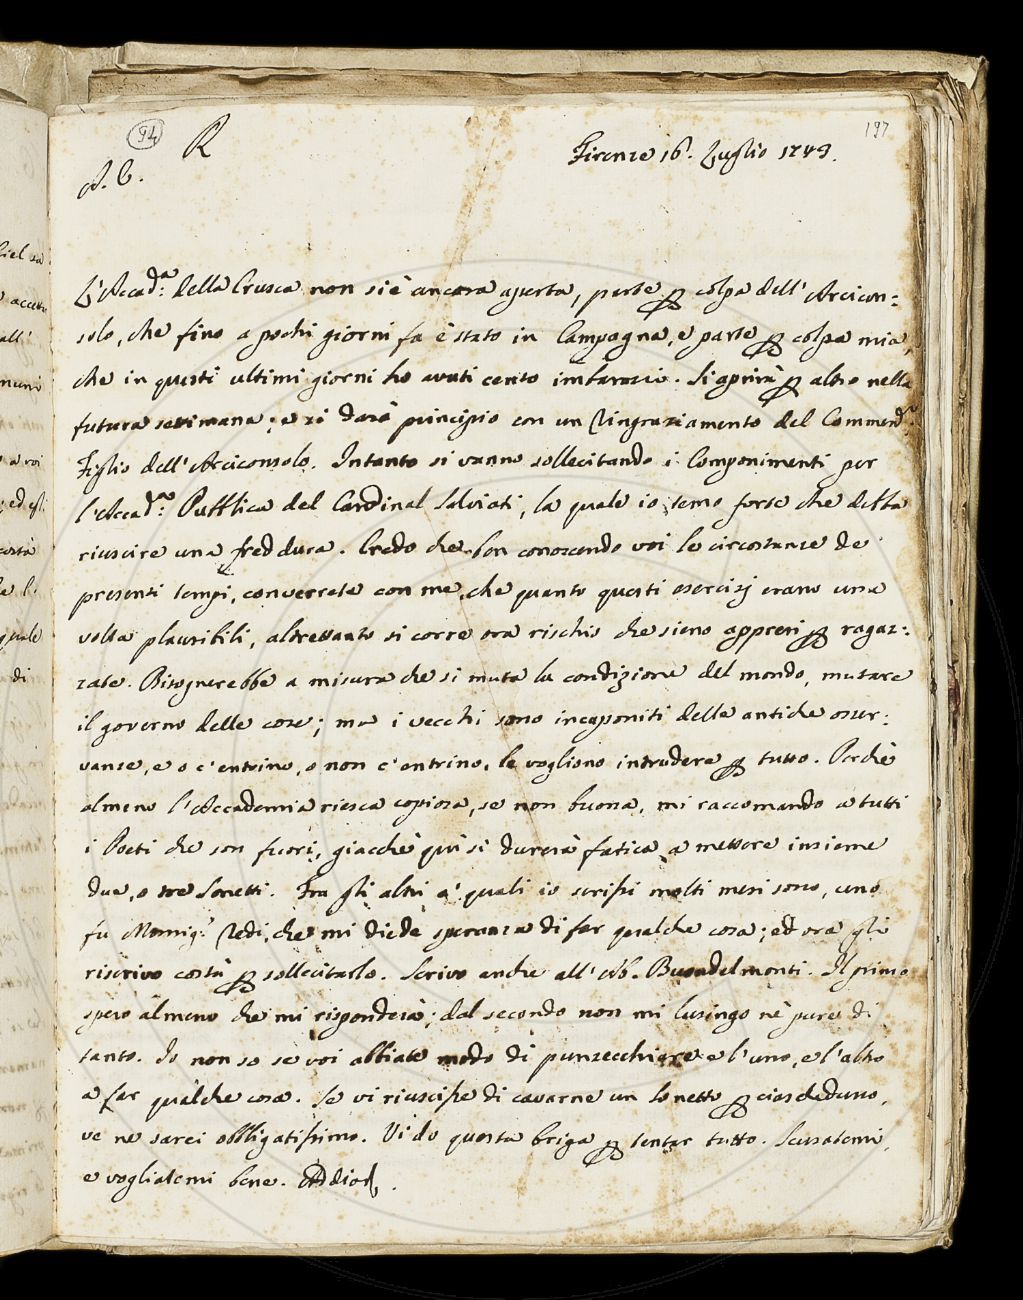 94
R
197
A. C.
Firenze 16. Luglio 1749.
L'Accad.a della Crusca non si è ancora aperta, parte p colpa dell'Arcicon:
solo, che fino a pochi giorni fa è stato in Campagna, e parte p colpa mia,
che in questi ultimi giorni ho avuti cento imbarazzi. Si aprirà p altro nella
futura settimana; e si darà principio con un Ringraziamento del Commend.r
Figlio dell'Arciconsolo. Intanto si vanno sollecitando i Componimenti per
l'Accad.a Pubblica del Cardinal Salviati, la quale io temo forte che debba
riuscire una freddura. Credo che ben conoscendo voi le circostanze de
presenti tempi, converrete con me, che quanto questi esercizj erano una
volta plausibili, altrettanto si corre ora rischio che sieno appresi p ragaz:
zate. Bisognerebbe a misura che si muta la condizione del mondo, mutare
il governo delle cose; ma i vecchi sono incaponiti delle antiche osser:
vanze, e o c'entrino, o non c'entrino, le vogliono intrudere p tutto. Perchè
almeno l'Accademia riesca copiosa, se non buona, mi raccomando a tutti
i Poeti che son fuori, giacchè quì si durerà fatica a mettere insieme
due, o tre Sonetti. Fra gli altri a' quali io scrissi molti mesi sono, uno
fu Monsig.r Redi, che mi diede speranza di far qualche cosa; ed ora gli
riscrivo costà p sollecitarlo. Scrivo anche all'Ab. Buondelmonti. Il primo
spero almeno che mi risponderà; dal secondo non mi lusingo nè pure di
tanto. Io non so se voi abbiate modo di punzecchiare e l'uno, e l'altro
a far qualche cosa. Se vi riuscisse di cavarne un Sonetto p ciascheduno,
ve ne sarei obbligatissimo. Vi do questa briga p tentar tutto. Scusatemi,
e vogliatemi bene. Addio.